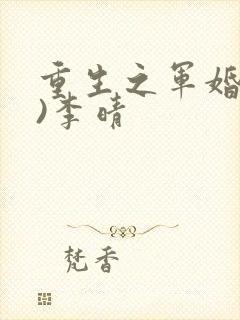 重生之军婚
)李晴
梵香